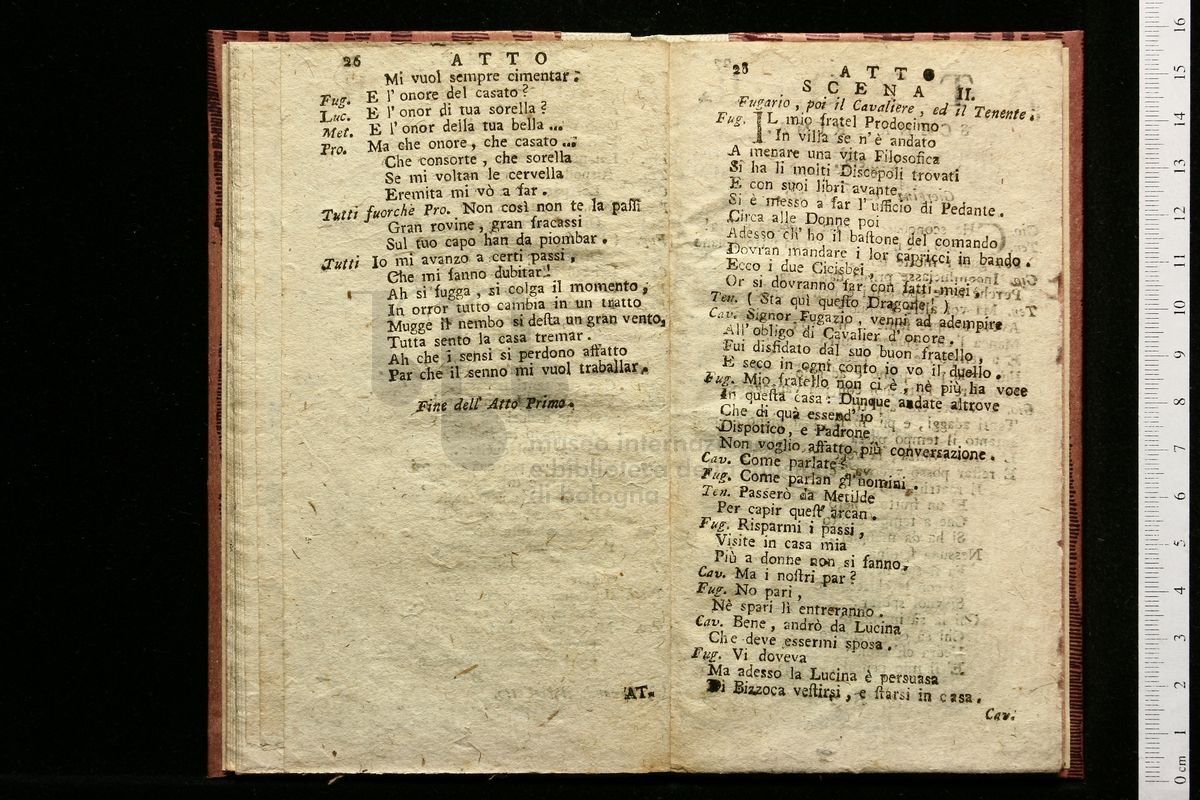 26
ATTO
Mi vuol sempre cimentar.
Fug. E l' onore del casato?
Luc. E l' onor di tua sorella?
Met. E l' onor della tua bella ...
Pro. Ma che onore, che casato ...
Che consorte, che sorella
Se mi voltan le cervella
Eremita mi vò a far.
Tutti fuorchè Pro. Non così non te la paſſi
Gran rovine, gran fracassi
Sul tuo capo han da piombar.
Tutti Io mi avanzo a certi passi,
Che mi fanno dubitar!
Ah si fugga, si colga il momento,
In orror tutto cambia in un tratto
Mugge il nembo si deſta un gran vento,
Tutta sento la casa tremar.
Ah che i sensi si perdono affatto
Par che il senno mi vuol traballar.
Fine dell' Atto Primo.
AT-
28
ATTO
SCENA II.
Fugario, poi il Cavaliere, ed il Tenente.
Fug. IL mio fratel Prodocimo
In villa se n'è andato
A menare una vita Filosofica
Si ha li molti Discepoli trovati
E con suoi libri avante
Si è messo a far l' ufficio di Pedante.
Circa alle Donne poi
Adesso ch' ho il baſtone del comando
Dovran mandare i lor capricci in bando.
Ecco i due Cicisbei,
Or si dovranno far con fatti miei.
Ten. ( Sta quì queſto Dragone! )
Cav. Signor Fugazio, venni ad adempire
All' obligo di Cavalier d'onore.
Fui disfidato dal suo buon fratello,
E seco in ogni conto io vo il duello.
Fug. Mio fratello non ci è, nè più ha voce
In queſta casa: Dunque andate altrove
Che di quà essend' io
Dispotico, e Padrone
Non voglio affatto più conversazione.
Cav. Come parlate?
Fug. Come parlan gl'uomini.
Ten. Passerò da Metilde
Per capir queſt' arcan.
Fug. Risparmi i passi,
Visite in casa mia
Più a donne non si fanno.
Cav. Ma i noſtri par?
Fug. No pari,
Nè spari lì entreranno.
Cav. Bene, andrò da Lucina
Che deve essermi sposa.
Fug. Vi doveva
Ma adesso la Lucina è persuasa
Di Bizzoca veſtirsi, e ſtarsi in casa.
Cav.